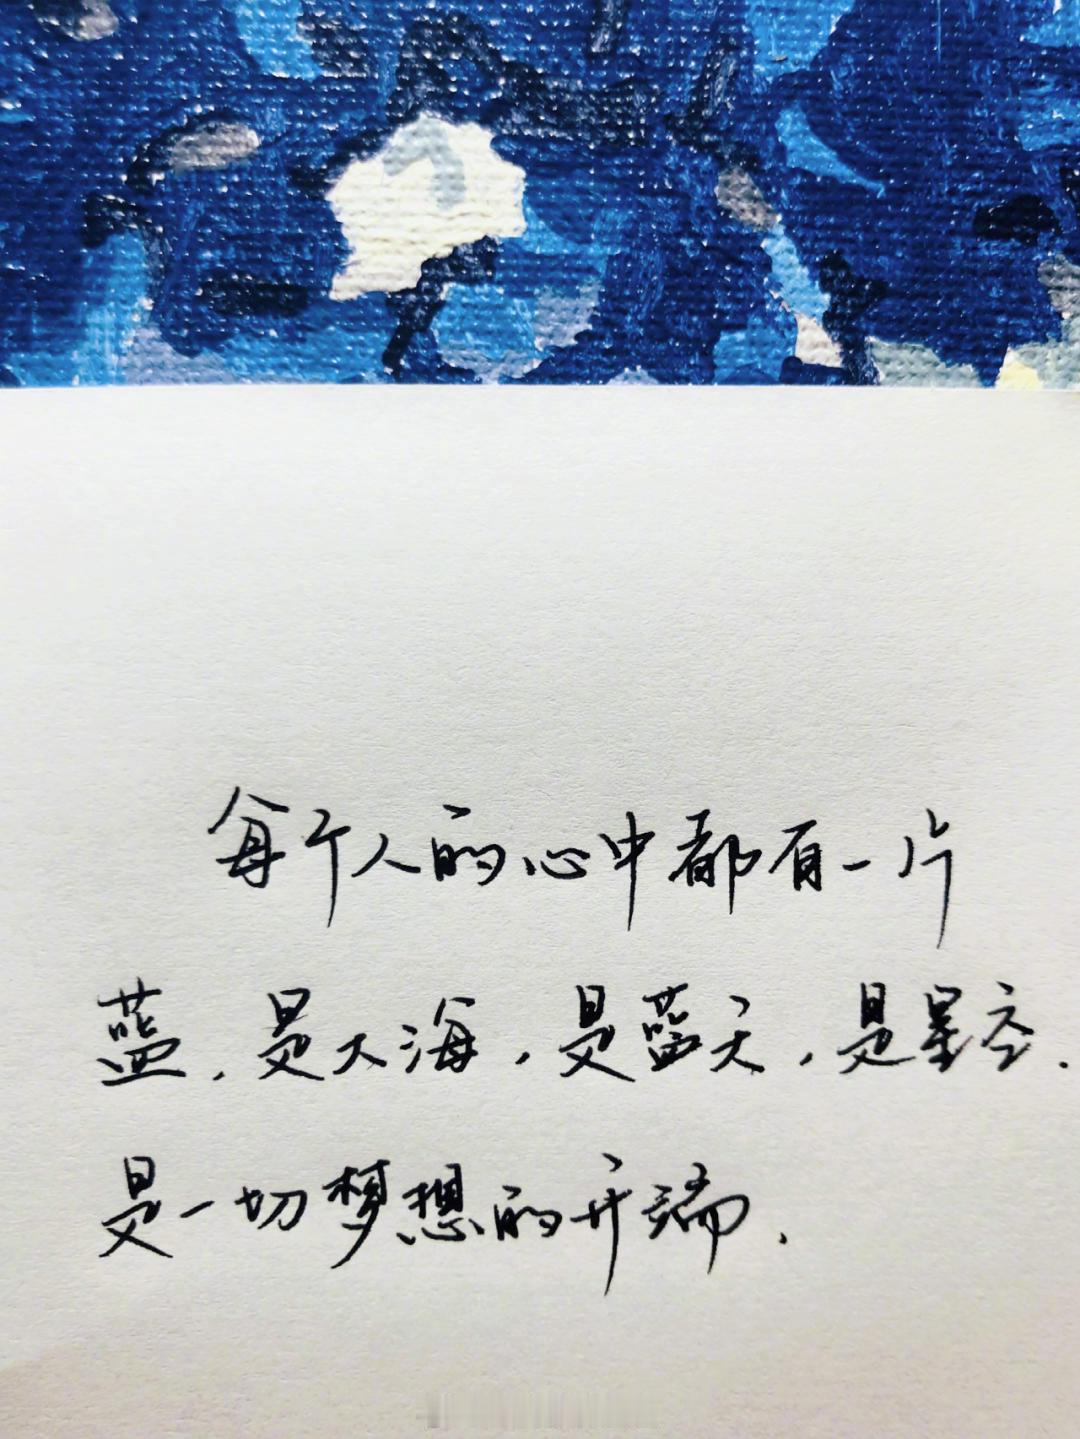 每个人的心中都有一片
蓝,是大海,是蓝天,是星空.
是一切梦想的开端.